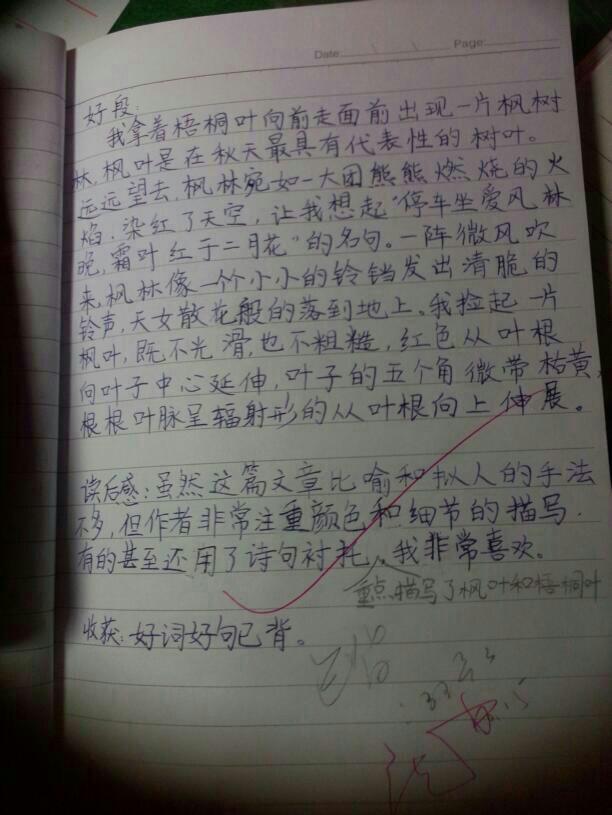 Date: Page:
好段:
我拿着梧桐叶向前走面前出现一片枫树
林,枫叶是在秋天最具有代表性的树叶。
远远望去,枫林宛如一大团熊熊燃烧的火
焰,染红了天空,让我想起“停车坐爱风林
晚,霜叶红于二月花”的名句。一阵微风吹
来,枫林像一个个小小的铃铛发出清脆的
铃声,天女散花般的落到地上。我捡起一片
枫叶,既不光滑,也不粗糙,红色从叶根
向叶子中心延伸,叶子的五个角微带枯黄,
根根叶脉呈辐射形的从叶根向上伸展。
读后感:虽然这篇文章比喻和拟人的手法
不多,但作者非常注重颜色和细节的描写.
有的甚至还用了诗句衬托,我非常喜欢。
重点描写了枫叶和梧桐叶
收获:好词好句已背。